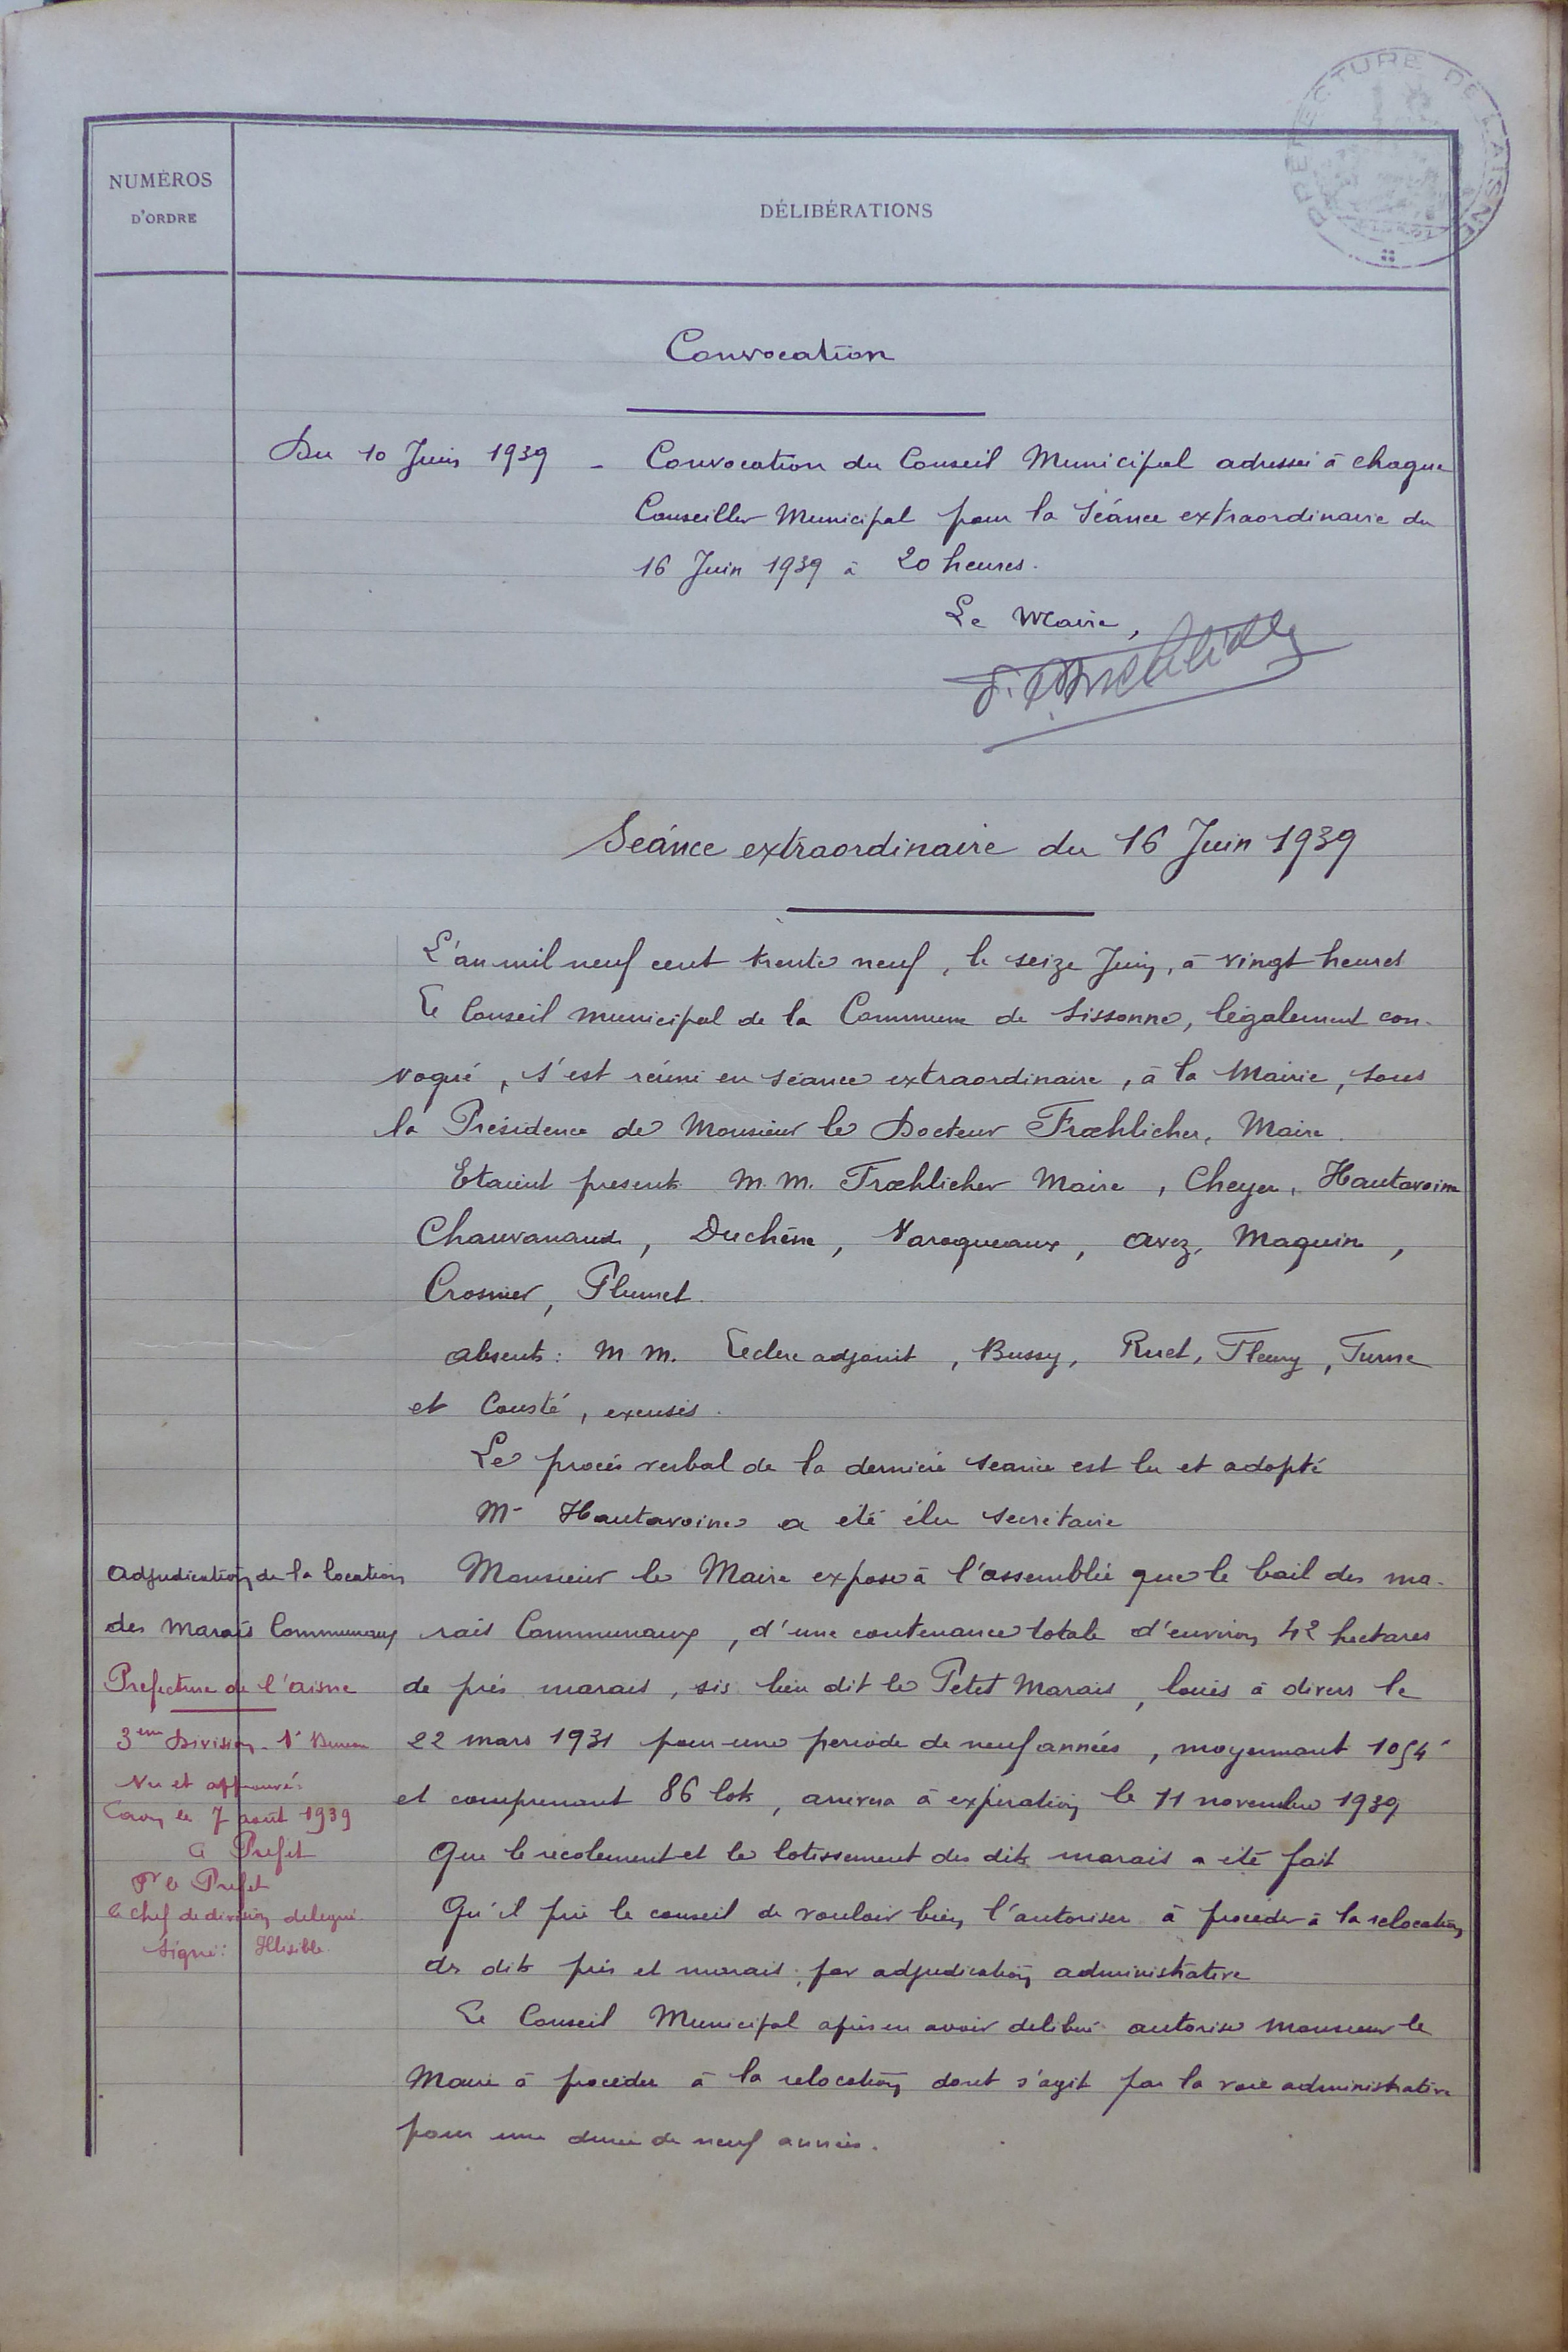 PREFECTURE DE L'AISNE
NUMÉROS
D'ORDRE
DÉLIBÉRATIONS
Convocation
Du 10 Juin 1939 - Convocation du Conseil Municipal adressé à chaque
Conseiller Municipal pour la Séance extraordinaire du
16 Juin 1939 à 20 heures.
Le Maire,
Séance extraordinaire du 16 Juin 1939
L'an mil neuf cent trente neuf, le seize Juin, à vingt heures
Le Conseil municipal de la Commune de Sissonne, légalement con-
voqué, s'est réuni en séance extraordinaire, à la Mairie, sous
la Présidence de Monsieur le Docteur Froehlicher, Maire.
Etaient présents M.M. Froehlicher Maire, Cheyer, Hautavoine
Chauvanaud, Duchêne, Varoqueaux, Avez, Maguin,
Crosnier, Plumet.
absents: M M. Leclerc adjoint, Bussy, Ruet, Fleury, Turne
et Cousté, excusés.
Le procès verbal de la dernière séance est lu et adopté
Mr Hautavoine a été élu secrétaire
Adjudication de la location
des Marais Communaux
Préfecture de l'Aisne
3em Division - 1r Bureau
Vu et approuvé:
Laon le 7 août 1939
Le Préfet
Pr le Préfet
le Chef de division délégué
Signé: Illisible.
Monsieur le Maire expose à l'assemblée que le bail des ma-
rais Communaux, d'une contenance totale d'environ 42 hectares
de prés marais, sis lieu dit le Petit Marais, loués à divers le
22 mars 1931 pour une période de neuf années, moyennant 1054
et comprenant 86 lots, arrivera à expiration le 11 novembre 1939
Que le récolement et le lotissement des dits marais a été fait
Qu'il prie le conseil de vouloir bien l'autoriser à procéder à la relocation
des dits prés et marais par adjudication administrative
Le Conseil Municipal après en avoir délibéré autorise Monsieur le
Maire à procéder à la relocation dont s'agit par la voie administrative
pour une durée de neuf années.